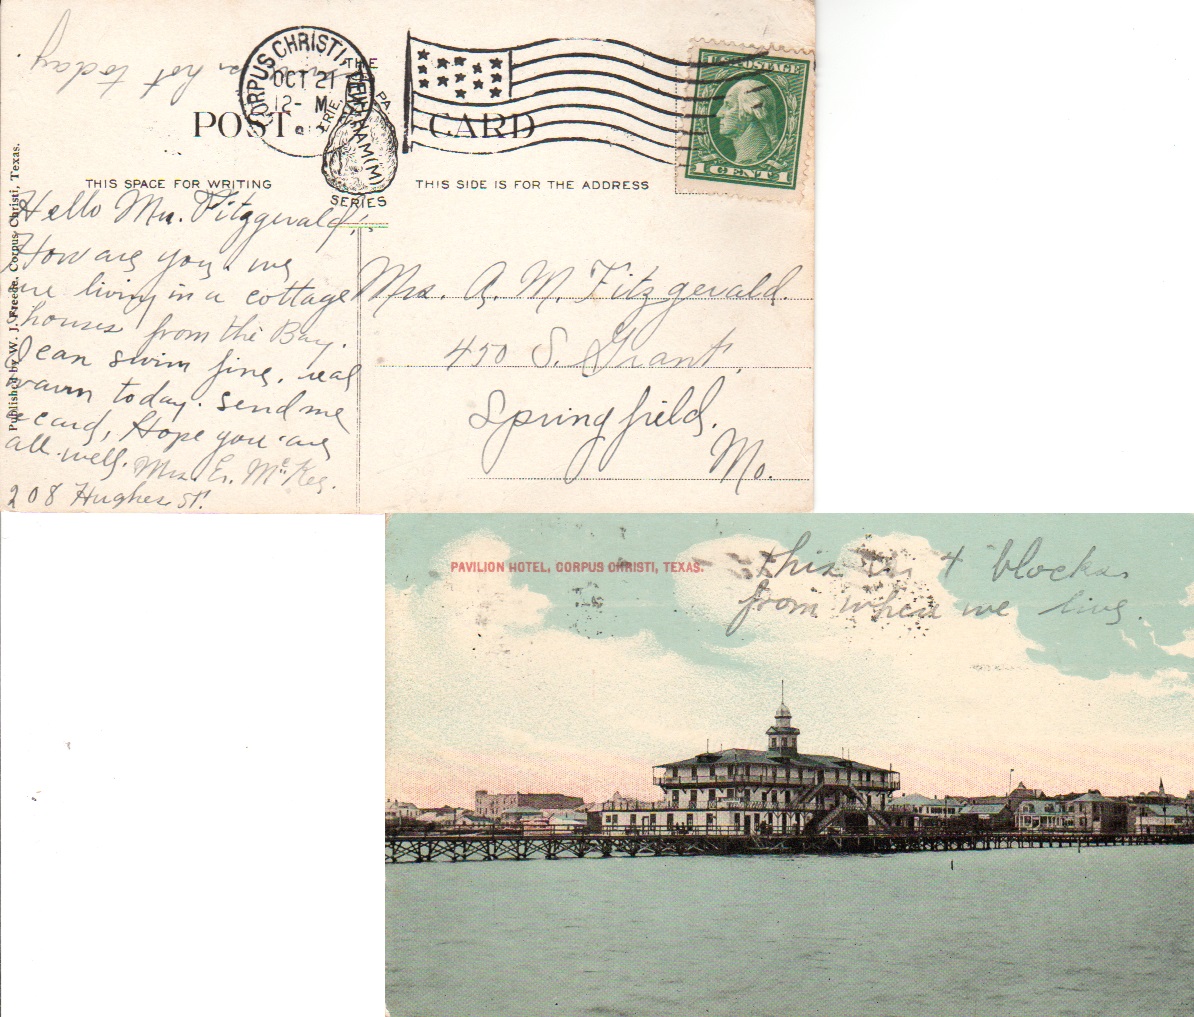 hot today
CORPUS CHRISTI, TEX.
OCT 21
12- M
THE
ERIE, PA.
POST CARD
U.S. POSTAGE
1 CENT 1
THIS SPACE FOR WRITING
SERIES
THIS SIDE IS FOR THE ADDRESS
Published by W. J. Freede, Corpus Christi, Texas.
Hello Mrs. Fitzgerald;
How are you. we
are living in a cottage
houses from the Bay.
I can swim fine. real
warm today. send me
a card, Hope you are
all well. Mrs. E. McKee.
208 Hughes St.
Mrs. A. M. Fitzgerald.
450 S. Grant,
Springfield,
Mo.
PAVILION HOTEL, CORPUS CHRISTI, TEXAS.
this is 4 blocks
from where we live.